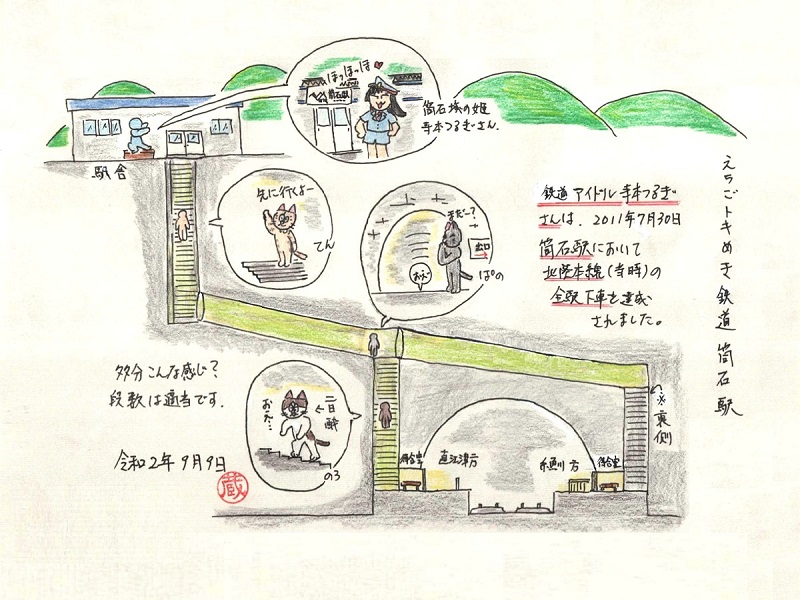 ほっほっほ♥
筒石駅
筒石城の姫
寺本つるぎさん.
駅舎
先に行くよー
てん
まだー?
→
出口
おえ〜
ぱの
えちごトキめき鉄道 筒石駅
鉄道アイドル寺本つるぎ
さんは、2011年7月30日
筒石駅において
北陸本線(当時)の
全駅下車を達成
されました。
多分こんな感じ?
段数は適当です.
令和2年9月9日
蔵
おえ…
←二日酔
のろ
待合室
直江津方
糸魚川方
待合室
※裏側